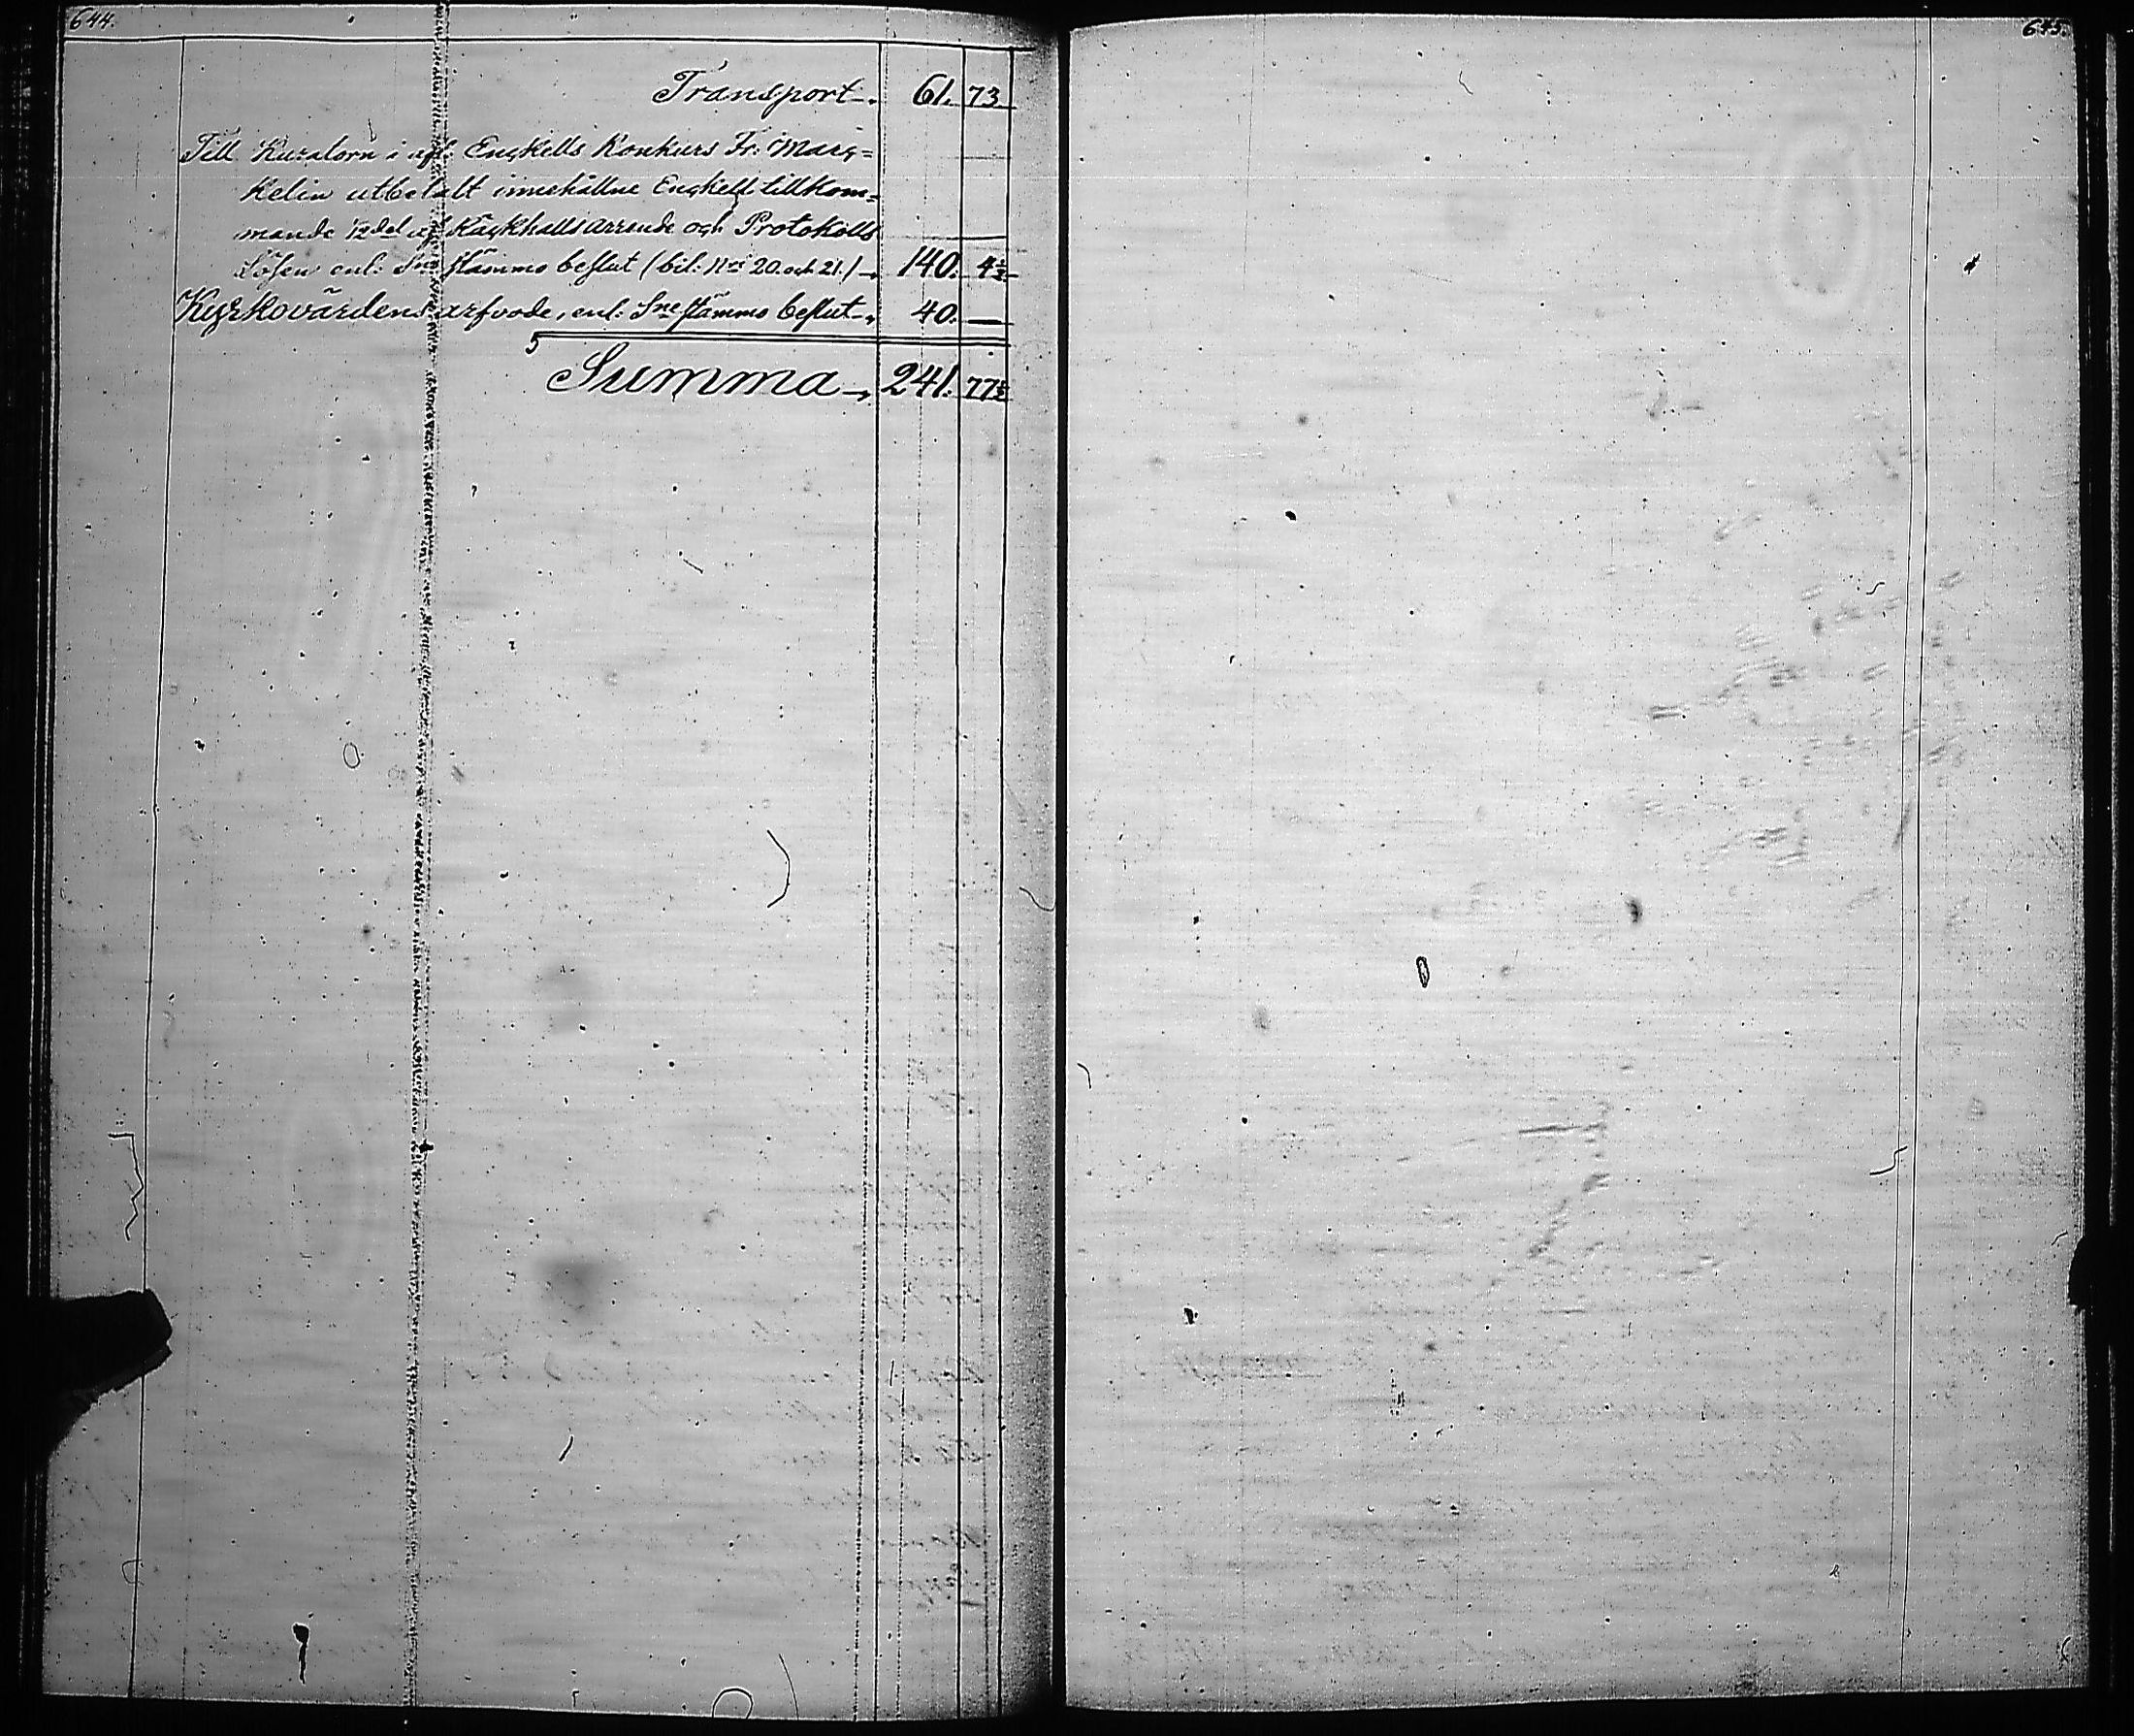 644.
Transport 61. 73.
Till Kuratorn i afl: Enqkells Konkurs Fr: Marq=
kelin utbetalt innehållne Enqkell tillkom=
mande 1/2 del af Kaqkhalls arrende och Protokolls
Lösen enl: Sne stämmo beslut (bil: Nris 20. och 21.) 140. 4 1/2
Kyrkovärdens arfvode, enl: Sne stämmo beslut 40. —
Summa 241. 77 1/2
645.